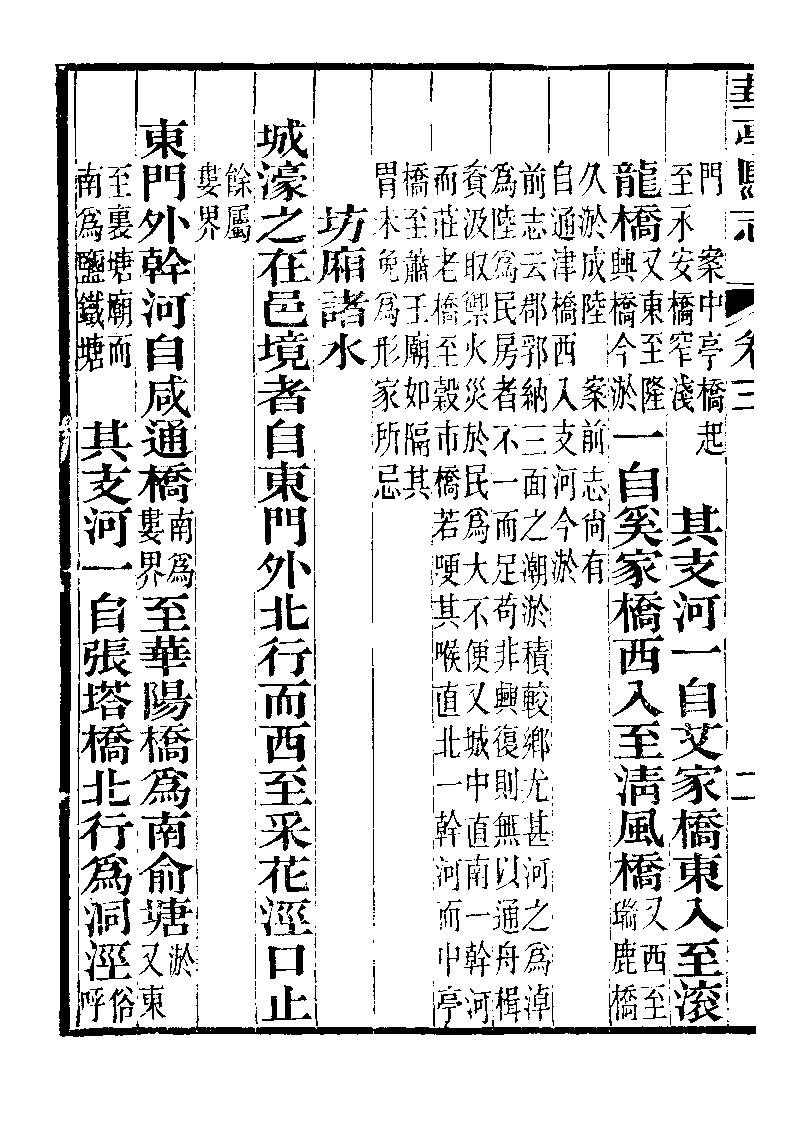 華亭縣志 卷三 二
門　案中亭橋起至永安橋窄淺　其支河一自艾家橋東入至滚
龍橋又東至隆興橋今淤一自奚家橋西入至淸風橋又西至瑞鹿橋
久淤成陸　案前志尙有
自通津橋西入支河今淤
前志云郡郭納三面之潮淤積較鄉尤甚河之爲淖
爲陸爲民房者不一而足苟非興復則無以通舟楫
資汲取禦火災於民爲大不便又城中直南一幹河
而莊老橋至穀市橋若哽其喉直北一幹河而中亭
橋至蕭王廟如隔其
胃未免爲形家所忌
坊廂諸水
城濠之在邑境者自東門外北行而西至采花涇口止
餘屬
婁界
東門外幹河自咸通橋南爲婁界至華陽橋爲南俞塘淤又東
至裏塘廟而南爲鹽鐵塘　其支河一自張塔橋北行爲洞涇俗呼